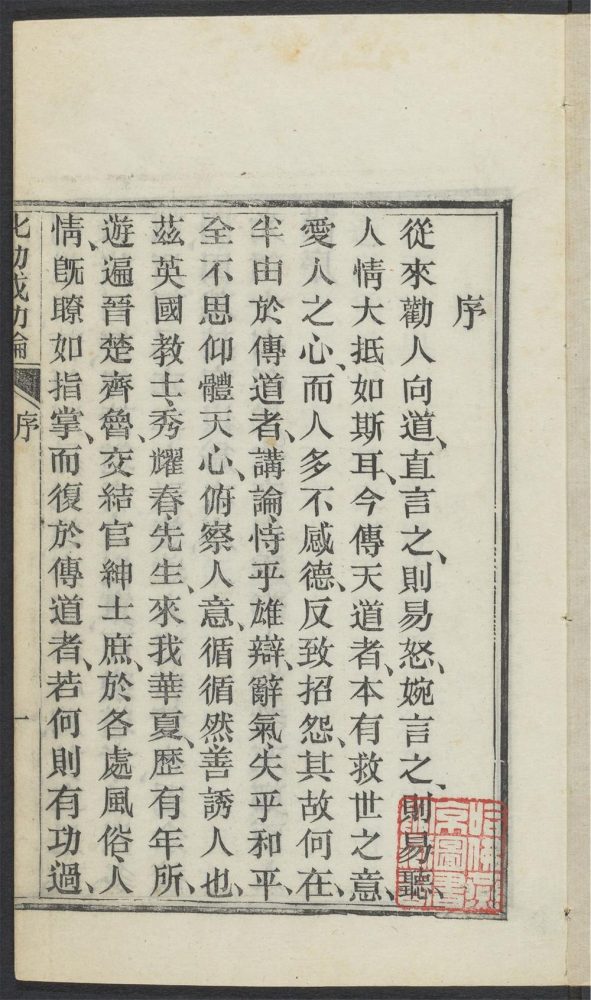 序
從來勸人向道、直言之、則易怒、婉言之、則易聽、
人情大抵如斯耳、今傳天道者、本有救世之意、
愛人之心、而人多不感德、反致招怨、其故何在、
半由於傳道者、講論恃乎雄辯、辭氣失乎和平、
全不思仰體天心、俯察人意、循循然善誘人也、
茲英國教士秀耀春先生、來我華夏、歷有年所、
遊遍晉楚齊魯、交結官紳士庶、於各處風俗人
情、既瞭如指掌、而復於傳道者、若何則有功過、
序
一